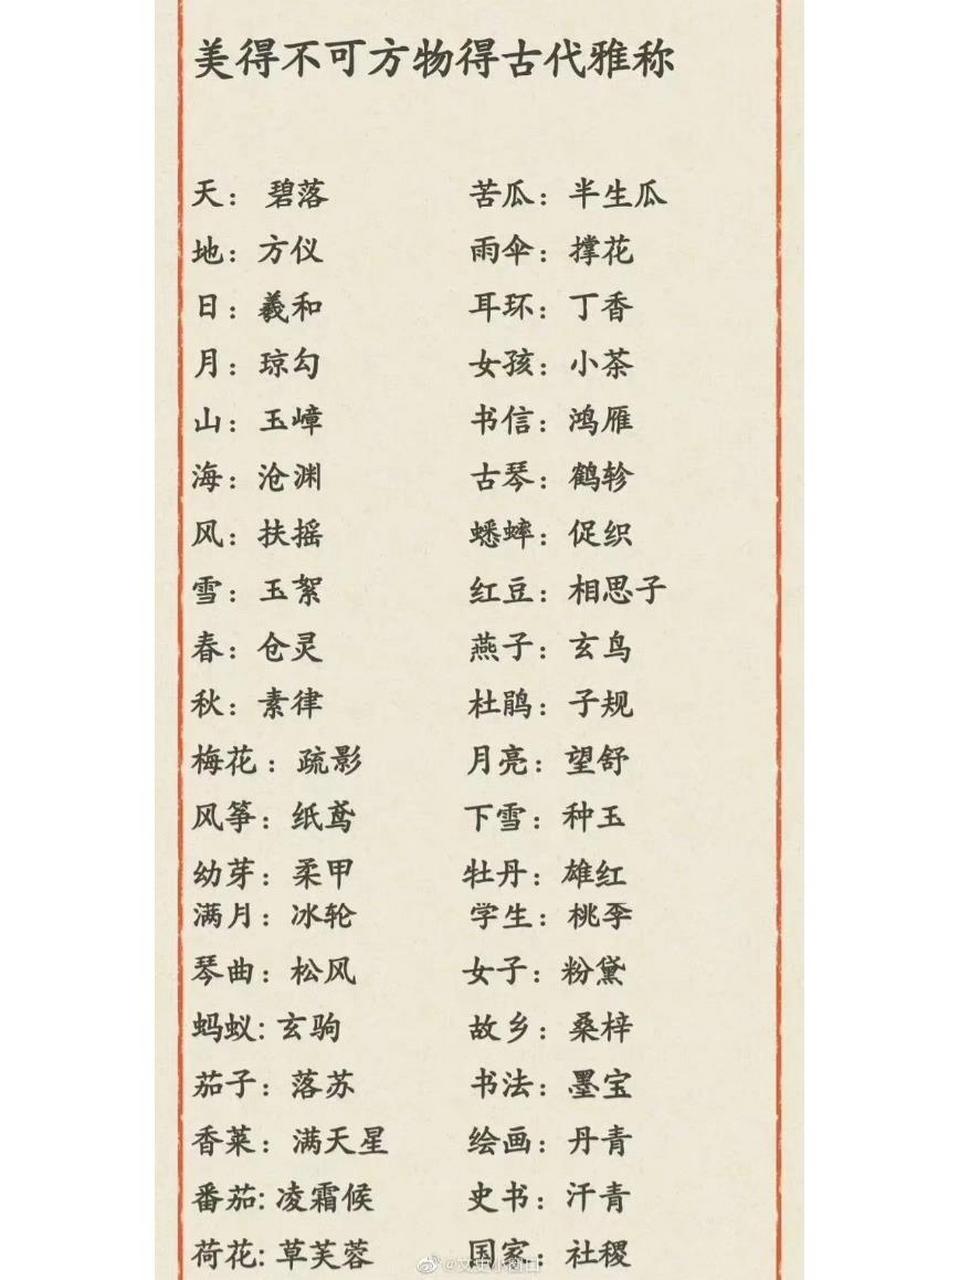 美得不可方物得古代雅称
天： 碧落
地：方仪
日：羲和
月：琼勾
山：玉嶂
海：沧渊
风：扶摇
雪：玉絮
春：仓灵
秋：素律
梅花：疏影
风筝：纸鸢
幼芽：柔甲
满月：冰轮
琴曲：松风
蚂蚁：玄驹
茄子：落苏
香菜：满天星
番茄：凌霜候
荷花：草芙蓉
苦瓜：半生瓜
雨伞：撑花
耳环：丁香
女孩：小茶
书信：鸿雁
古琴：鹤轸
蟋蟀：促织
红豆：相思子
燕子：玄鸟
杜鹃：子规
月亮：望舒
下雪：种玉
牡丹：雄红
学生：桃李
女子：粉黛
故乡：桑梓
书法：墨宝
绘画：丹青
史书：汗青
国家：社稷